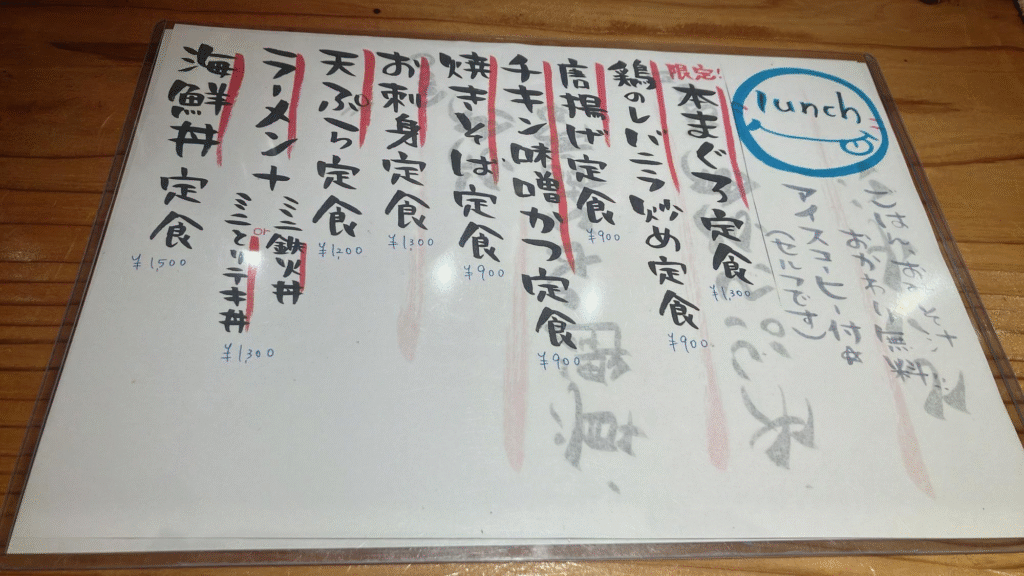 lunch
ごはん
おかわり無料
アイスコーヒー付☆
(セルフです)
限定!
本まぐろ定食
¥1,300
鶏のレバニラ炒め定食
¥900
唐揚げ定食
¥900
チキン味噌かつ定食
¥900
焼きそば定食
¥900
お刺身定食
¥1,300
天ぷら定食
¥1,200
ラーメン+
ミニ鉄火丼
or
ミニとりテキ丼
¥1,300
海鮮丼定食
¥1,500